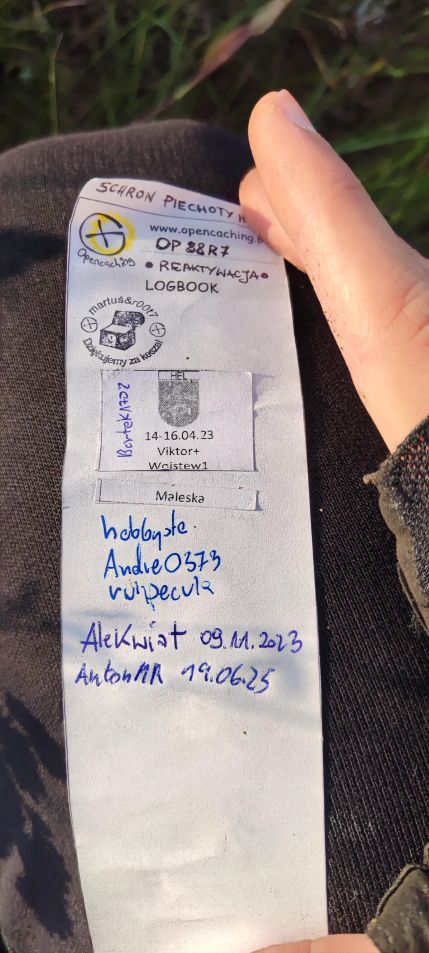 SCHRON PIECHOTY
www.opencaching.p
OP88R7
Opencaching
• REAKTYWACJA •
LOGBOOK
martuś&r00t7
Dziękujemy za kesza!
HEL
Bartek1702
14-16.04.23
Viktor+
Wojstew1
Maleska
hobbysta
Andre0373
vulpecula
AleKwiat 09.11.2023
AntonMR 19.06.25